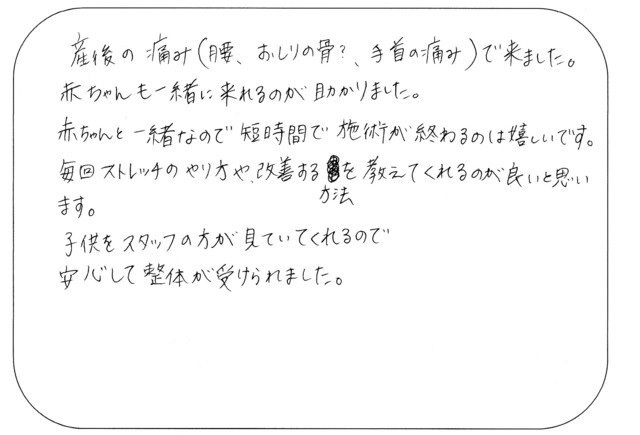 産後の痛み(腰、おしりの骨?、手首の痛み)で来ました。
赤ちゃんも一緒に来れるのが助かりました。
赤ちゃんと一緒なので短時間で施術が終わるのは嬉しいです。
毎回ストレッチのやり方や、改善する方法を教えてくれるのが良いと思い
ます。
子供をスタッフの方が見ていてくれるので
安心して整体が受けられました。